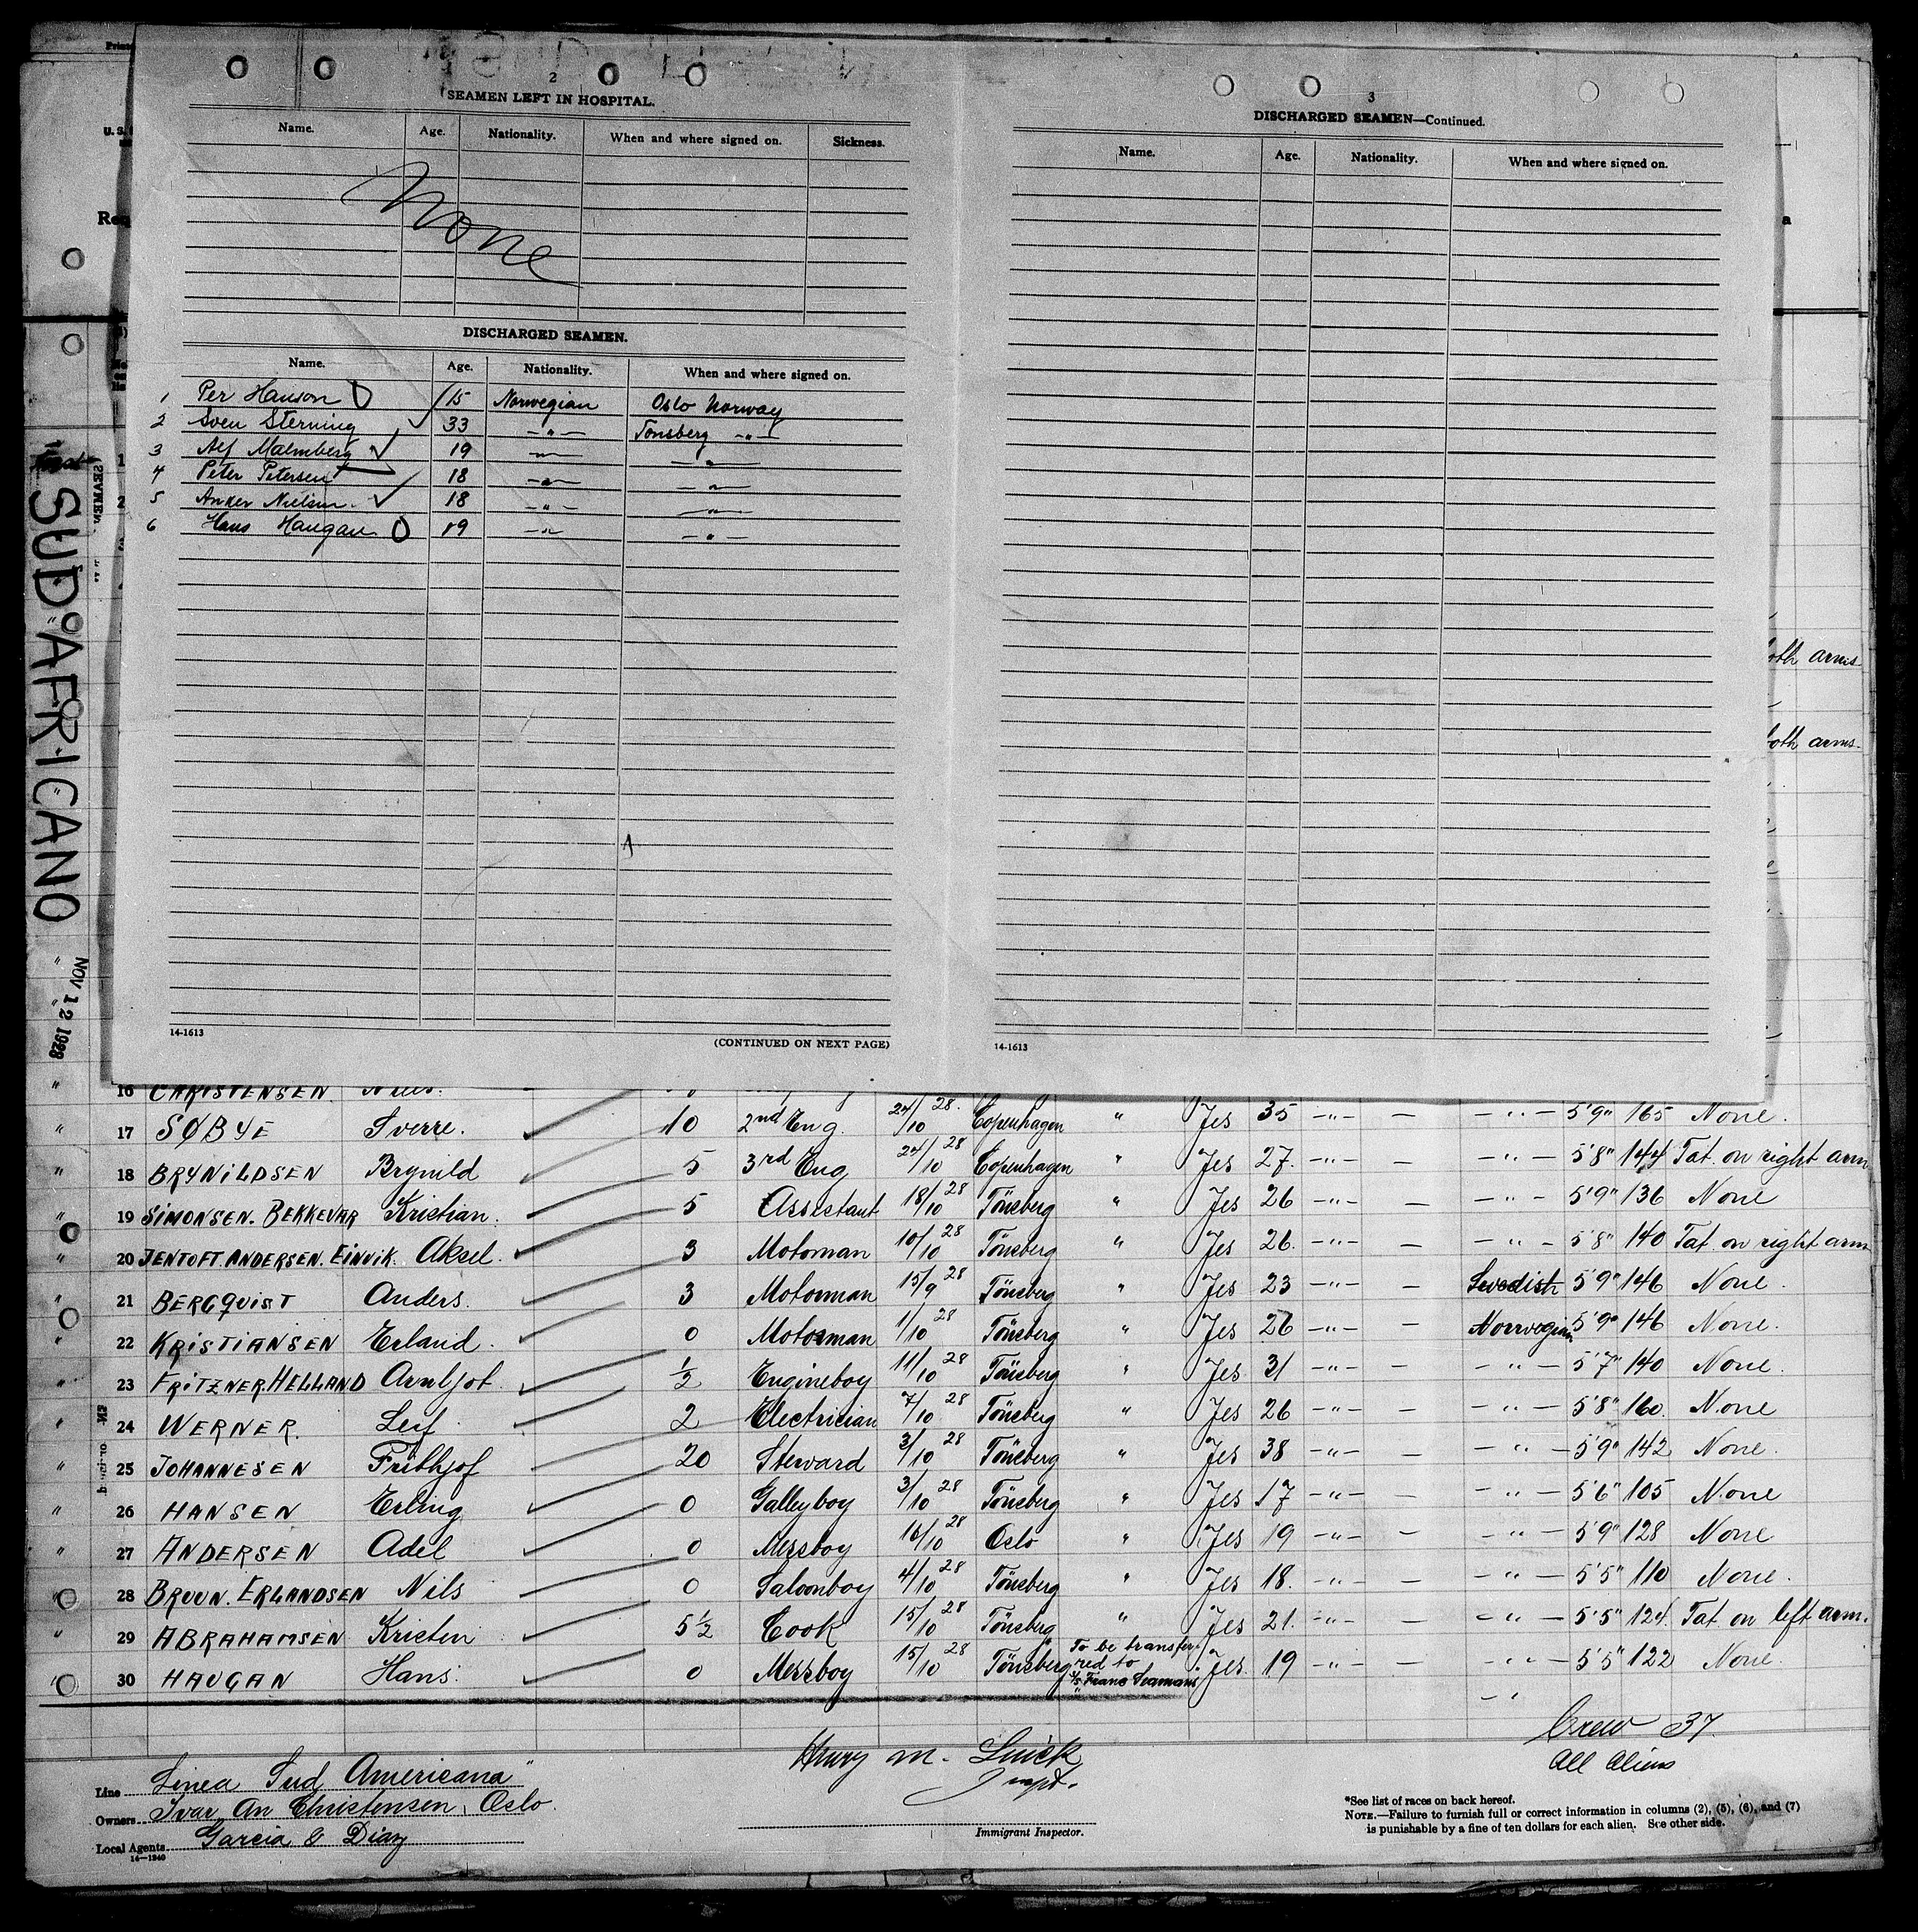 2
SEAMEN LEFT IN HOSPITAL.
Name. Age. Nationality. When and where signed on. Sickness.
None
DISCHARGED SEAMEN.
Name. Age. Nationality. When and where signed on.
1 Per Hanson 15 Norwegian Oslo Norway
2 Sven Sterning 33 -"- Tonsberg -"-
3 Alf Malmberg 19 -"- -"-
4 Peter Petersen 18 -"- -"-
5 Anker Nielsen 18 -"- -"-
6 Hans Haugan 19 -"- -"-
14-1613
(CONTINUED ON NEXT PAGE)
3
DISCHARGED SEAMEN—Continued.
Name. Age. Nationality. When and where signed on.
14-1613
SUD AFRICANO
NOV 12 1928
both arms-
both arms-
16 CHRISTENSEN
17 SØBYE Sverre. 10 2nd Eng. 24/10 28. Copenhagen " Yes 35 -"- — -"- 5'9" 165 None.
18 BRYNILDSEN Brynild 5 3rd Eng 24/10 28 Copenhagen " Yes 27. -"- — -"- 5'8" 144 Tat. on right arm
19 SIMONSEN. BEKKEVAR Kristian. 5 Assistant 18/10 28 Tönsberg " Yes 26 -"- — -"- 5'9" 136 None
20 JENTOFT. ANDERSEN. EINVIK. Aksel. 3 Motorman 10/10 28 Tönsberg " Yes 26. -"- — -"- 5'8" 140 Tat. on right arm
21 BERGQUIST Anders. 3 Motorman 15/9 28 Tönsberg " Yes 23 -"- — Swedish 5'9" 146 None.
22 KRISTIANSEN Erland. 0 Motorman 1/10 28 Tönsberg " Yes 26 -"- — Norwegian 5'9" 146 None.
23 FRITZNER. HELLAND Arnljot. 1/2 Engineboy 11/10 28 Tönsberg " Yes 31 -"- — -"- 5'7" 140 None.
24 WERNER. Leif 2 Electrician 7/10 28 Tönsberg " Yes 26 -"- — -"- 5'8" 160. None
25 JOHANNESEN Frithjof 20 Steward 3/10 28 Tönsberg " Yes 38 -"- — -"- 5'9" 142 None.
26 HANSEN Erling 0 Galleyboy 3/10 28 Tönsberg " Yes 17 -"- — -"- 5'6" 105 None
27 ANDERSEN Adel 0 Messboy 16/10 28 Oslo " Yes 19 -"- — -"- 5'9" 128 None
28 BRUUN. ERLANDSEN Nils 0 Saloonboy 4/10 28 Tönsberg " Yes 18. -"- — -"- 5'5" 110 None.
29 ABRAHAMSEN Kristen 5 1/2 Cook 15/10 28 Tönsberg " Yes 21. -"- — -"- 5'5" 124. Tat on left arm.
30 HAUGAN Hans. 0 Messboy 15/10 28 Tönsberg To be transferred to Yes 19 -"- — -"- 5'5" 122 None.
Crew 37.
All Aliens
Henry M.
Inspt.
Immigrant Inspector.
Line Linea Sud Americana"
Owners Ivar An Christensen, Oslo.
Local Agents Garcia & Diaz
14—1240
*See list of races on back hereof.
NOTE.—Failure to furnish full or correct information in columns (2), (5), (6), and (7)
is punishable by a fine of ten dollars for each alien. See other side.